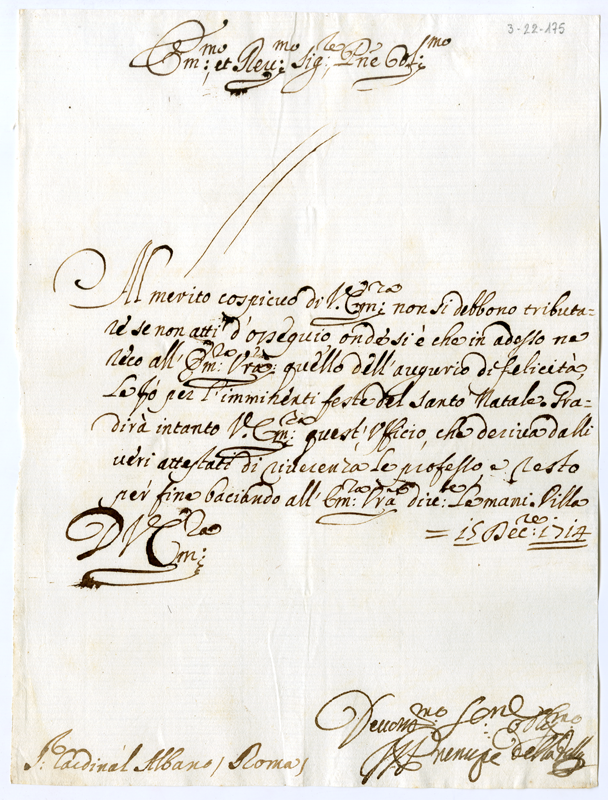 3-22-175
Em:mo et Reu:mo Sig:re Pne Col:mo
Al merito cospicuo di V. Em:za non si debbono tributa=
re se non atti d'ossequio onde si è che in adesso ne
reco all' Em:za Vra: quello dell'augurio di felicità,
Le fò per l'imminenti feste del santo Natale. Gra=
dirà intanto V. Em:za quest'Vfficio, che deriva dalli
veri attestati di riverenza Le professo e resto
per fine baciando all' Em:za Vra dice: le mani. Villa
= 15 Dec:re: 1714
D V Em:za
Deuotmo
della
S:r Cardinal Albano / Roma /